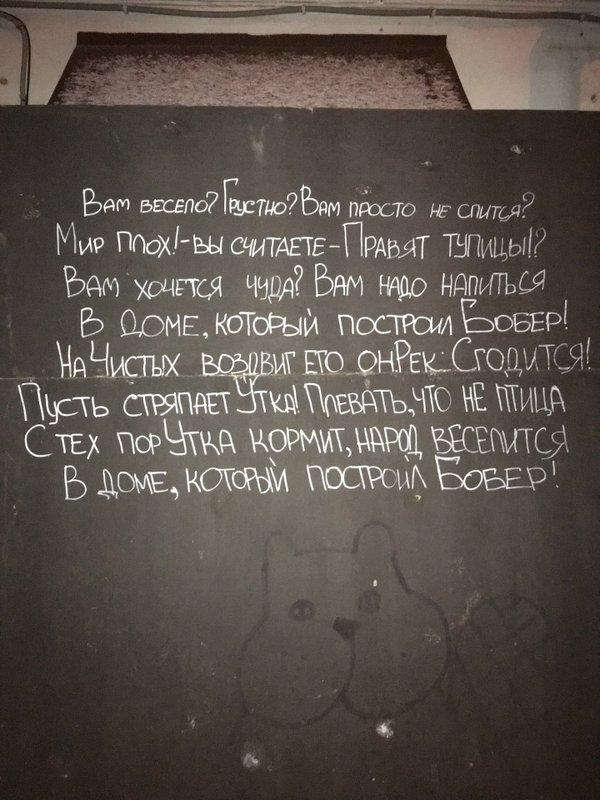 Вам весело? Грустно? Вам просто не спится?
Мир плох! - вы считаете - Правят тупицы!?
Вам хочется чуда? Вам надо напиться
В доме, который построил Бобер!
На Чистых воздвиг его он. Рек: Сгодится!
Пусть стряпает Утка! Плевать, что не птица
С тех пор Утка кормит, народ веселится
В доме, который построил Бобер!